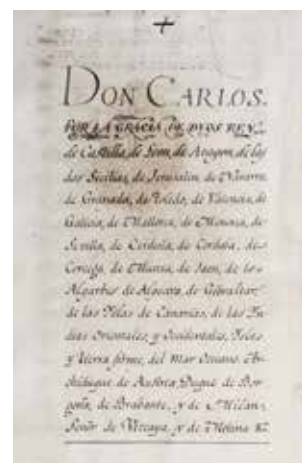 DON CARLOS.
POR LA GRACIA DE DYOS REY
de Castilla, de Leon, de Aragon, de las
dos Sicilias, de Jerusalen, de Navarra,
de Granada, de Toledo, de Valencia, de
Galicia, de Mallorca, de Menorca, de
Sevilla, de Cerdeña, de Cordova, de
Corcega, de Murcia, de Jaen, de los
Algarbes de Algecira, de Gibraltar,
de las Yslas de Canarias, de las Yn
dias Orientales, y Occidentales, Yslas,
y tierra firme, del Mar Oceano, Ar
chiduque de Austria, Duque de Bor
goña, de Brabante, y de Milan,
Señor de Vizcaya, y de Molina &c